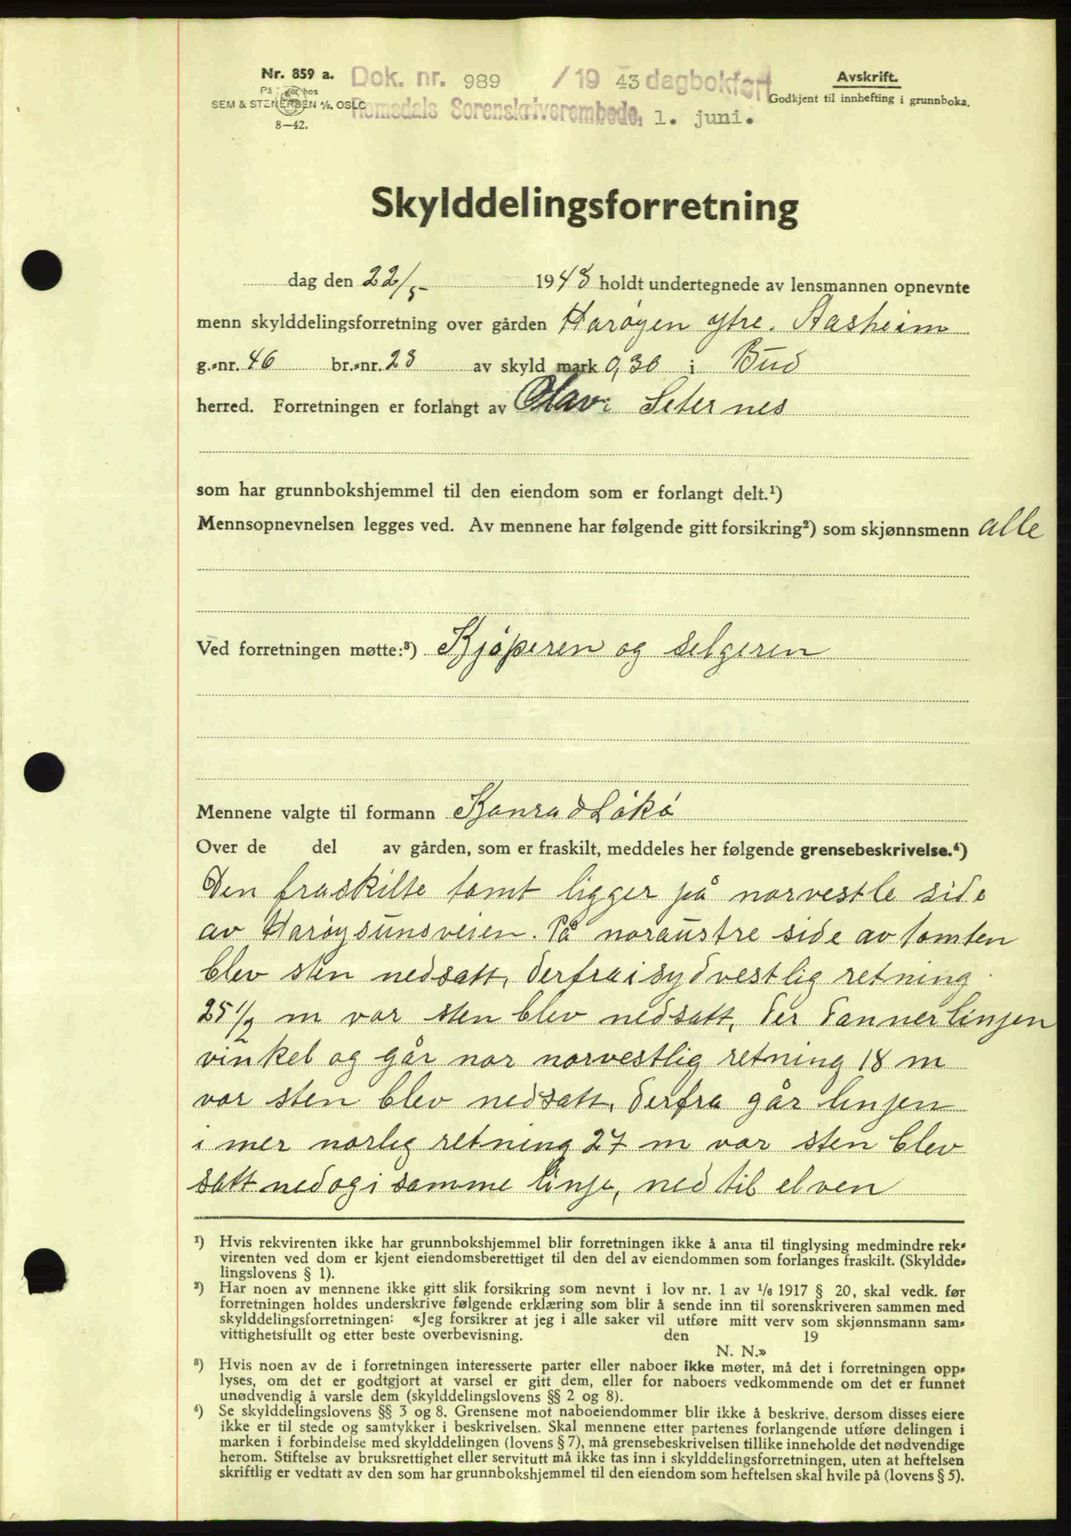 Nr. 859 a.
SEM & STENERSEN A/S. OSLO
8—42.
Dok. nr. 989 /19 43 dagbokført
Romsdals Sorenskriverembede, 1. juni.
Avskrift.
Godkjent til innhefting i grunnboka.
Skylddelingsforretning
dag den 22/5 1943 holdt undertegnede av lensmannen opnevnte
menn skylddelingsforretning over gården Harøyen ytre. Aasheim
g.-nr. 46 br.-nr. 23 av skyld mark 0,30 i Bud
herred. Forretningen er forlangt av Olav Seternes
som har grunnbokshjemmel til den eiendom som er forlangt delt.¹)
Mennsopnevnelsen legges ved. Av mennene har følgende gitt forsikring²) som skjønnsmenn alle
Ved forretningen møtte:³) Kjöperen og selgeren
Mennene valgte til formann Konrad Lökö
Over de del av gården, som er fraskilt, meddeles her følgende grensebeskrivelse.⁴)
Den fraskilte tomt ligger på norvestle side
av Harøysunsveien. På noraustre side av tomten
blev sten nedsatt, derfra i sydvestlig retning
25 1/2 m vor sten blev nedsatt, der danner linjen
vinkel og går nor norvestlig retning 18 m
vor sten blev nedsatt, derfra går linjen
i mer norlig retning 27 m vor sten blev
satt ned og i samme linje, ned til elven
¹) Hvis rekvirenten ikke har grunnbokshjemmel blir forretningen ikke å anta til tinglysing medmindre rek-
virenten ved dom er kjent eiendomsberettiget til den del av eiendommen som forlanges fraskilt. (Skyldde-
lingslovens § 1).
²) Har noen av mennene ikke gitt slik forsikring som nevnt i lov nr. 1 av 1/6 1917 § 20, skal vedk. før
forretningen holdes underskrive følgende erklæring som blir å sende inn til sorenskriveren sammen med
skylddelingsforretningen: «Jeg forsikrer at jeg i alle saker vil utføre mitt verv som skjønnsmann sam-
vittighetsfullt og etter beste overbevisning. den 19
N. N.»
³) Hvis noen av de i forretningen interesserte parter eller naboer ikke møter, må det i forretningen opp-
lyses, om det er godtgjort at varsel er gitt dem, eller for naboers vedkommende om det er funnet
unødvendig å varsle dem (skylddelingslovens §§ 2 og 8).
⁴) Se skylddelingslovens §§ 3 og 8. Grensene mot naboeiendommer blir ikke å beskrive, dersom disses eiere
ikke er til stede og samtykker i beskrivelsen. Skal mennene etter partenes forlangende utføre delingen i
marken i forbindelse med skylddelingen (lovens § 7), må grensebeskrivelsen tillike inneholde det nødvendige
herom. Stiftelse av bruksrettighet eller servitutt må ikke tas inn i skylddelingsforretningen, uten at heftelsen
skriftlig er vedtatt av den som har grunnbokshjemmel til den eiendom som heftelsen skal hvile på (lovens § 5).